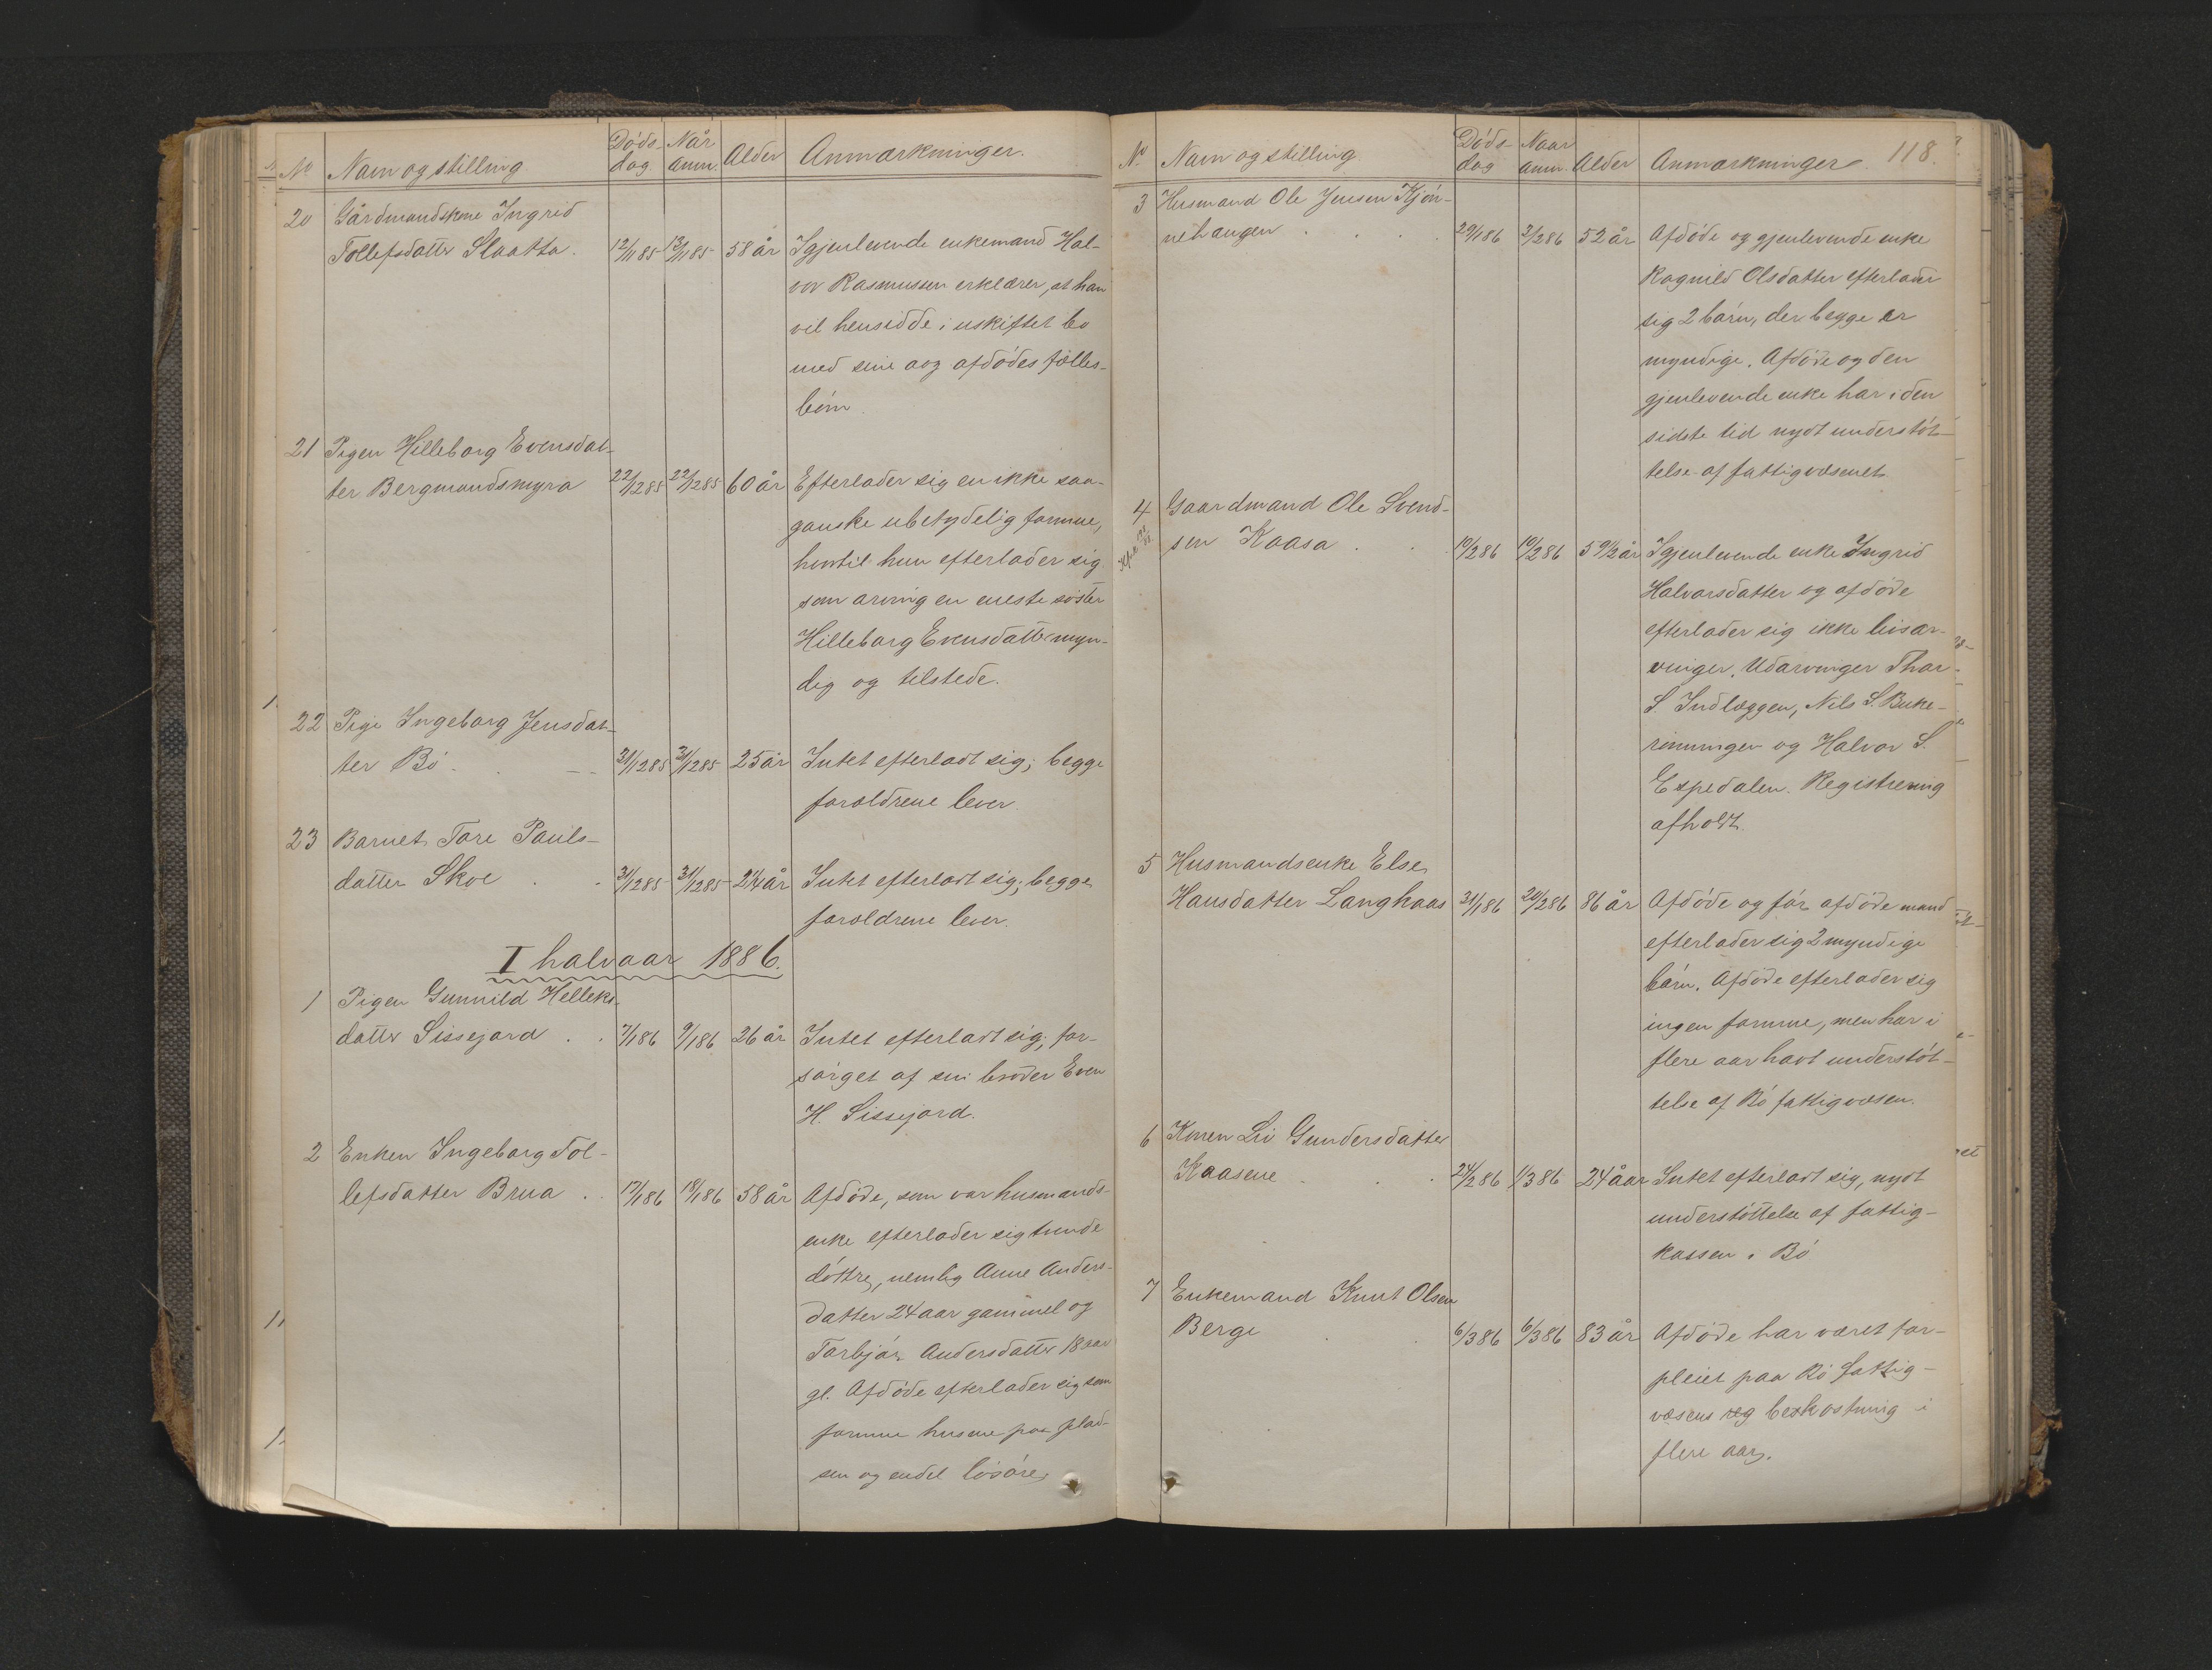 No Navn og stilling Døds- dag. Når anm. Alder Anmærkninger.
20 Gårdmandskone Ingrid
Tollefsdatter Slaatta. 12/11 85 13/11 85 58 år Igjenlevende enkemand Hal-
vor Rasmussen erklærer, at han
vil hensidde i uskiftet bo
med sine og afdødes fælles-
børn.
21 Pigen Hilleborg Evensdat-
ter Bergmandsmyra 22/12 85 22/12 85 60 år Efterlader sig en ikke saa-
ganske ubetydelig formue,
hvortil hun efterlader sig
som arving en eneste søster
Hilleborg Evensdatter myn-
dig og tilstede.
22 Pige Ingeborg Jensdat-
ter Bø. 31/12 85 31/12 85 25 år Intet efterladt sig; begge
forældrene lever.
23 Barnet Tore Pauls-
datter Skoe 31/12 85 31/12 85 2 1/4 år Intet efterladt sig; begge
forældrene lever.
I halvaar 1886.
1 Pigen Gunnild Helleks-
datter Sissejord . . 7/1 86 9/1 86 26 år Intet efterladt sig; for-
sørget af sin broder Even
H. Sissejord.
2 Enken Ingeborg Tol-
lefsdatter Brua . . 17/1 86 18/1 86 58 år Afdøde, som var husmands-
enke efterlader sig tvende
døttre, nemlig Anne Anders-
datter 24 aar gammel og
Torbjør Andersdatter 18 aar
gl. Afdøde efterlader sig som
formue husene paa plad-
sen og endel løsøre.
118.
No Navn og stilling Døds- dag Naar anm. Alder Anmærkninger.
3 Husmand Ole Jensen Kjøn-
nehaugen . . . 29/1 86 2/2 86 52 år Afdøde og gjenlevende enke
Ragnild Olsdatter efterlader
sig 2 børn, der begge er
myndige. Afdøde og den
gjenlevende enke har i den
sidste tid nydt understøt-
telse af fattigvæsenet.
4 Gaardmand Ole Svend-
sen Kaasa . . 10/2 86 10/2 86 59 1/2 år Igjenlevende enke Ingrid
Halvorsdatter og afdøde
efterlader sig ikke livsar-
vinger. Udarvinger Thor
S. Indlæggen, Nils S. Buke-
rinningen og Halvor S.
Espedalen. Registrering
afholdt.
5 Husmandsenke Else
Hansdatter Langkaas 31/1 86 20/2 86 86 år Afdøde og før afdøde mand
efterlader sig 2 myndige
børn. Afdøde efterlader sig
ingen formue, men har i
flere aar havt understøt-
telse af Bø fattigvæsen.
6 Konen Liv Gundersdatter
Kaasene . . 24/2 86 1/3 86 24 åar Intet efterladt sig, nydt
understøttelse af fattig-
kassen i Bø
7 Enkemand Knut Olsen
Berge . . 6/3 86 6/3 86 83 år Afdøde har været for-
pleiet paa Bø fattig-
væsens bekostning i
flere aar.